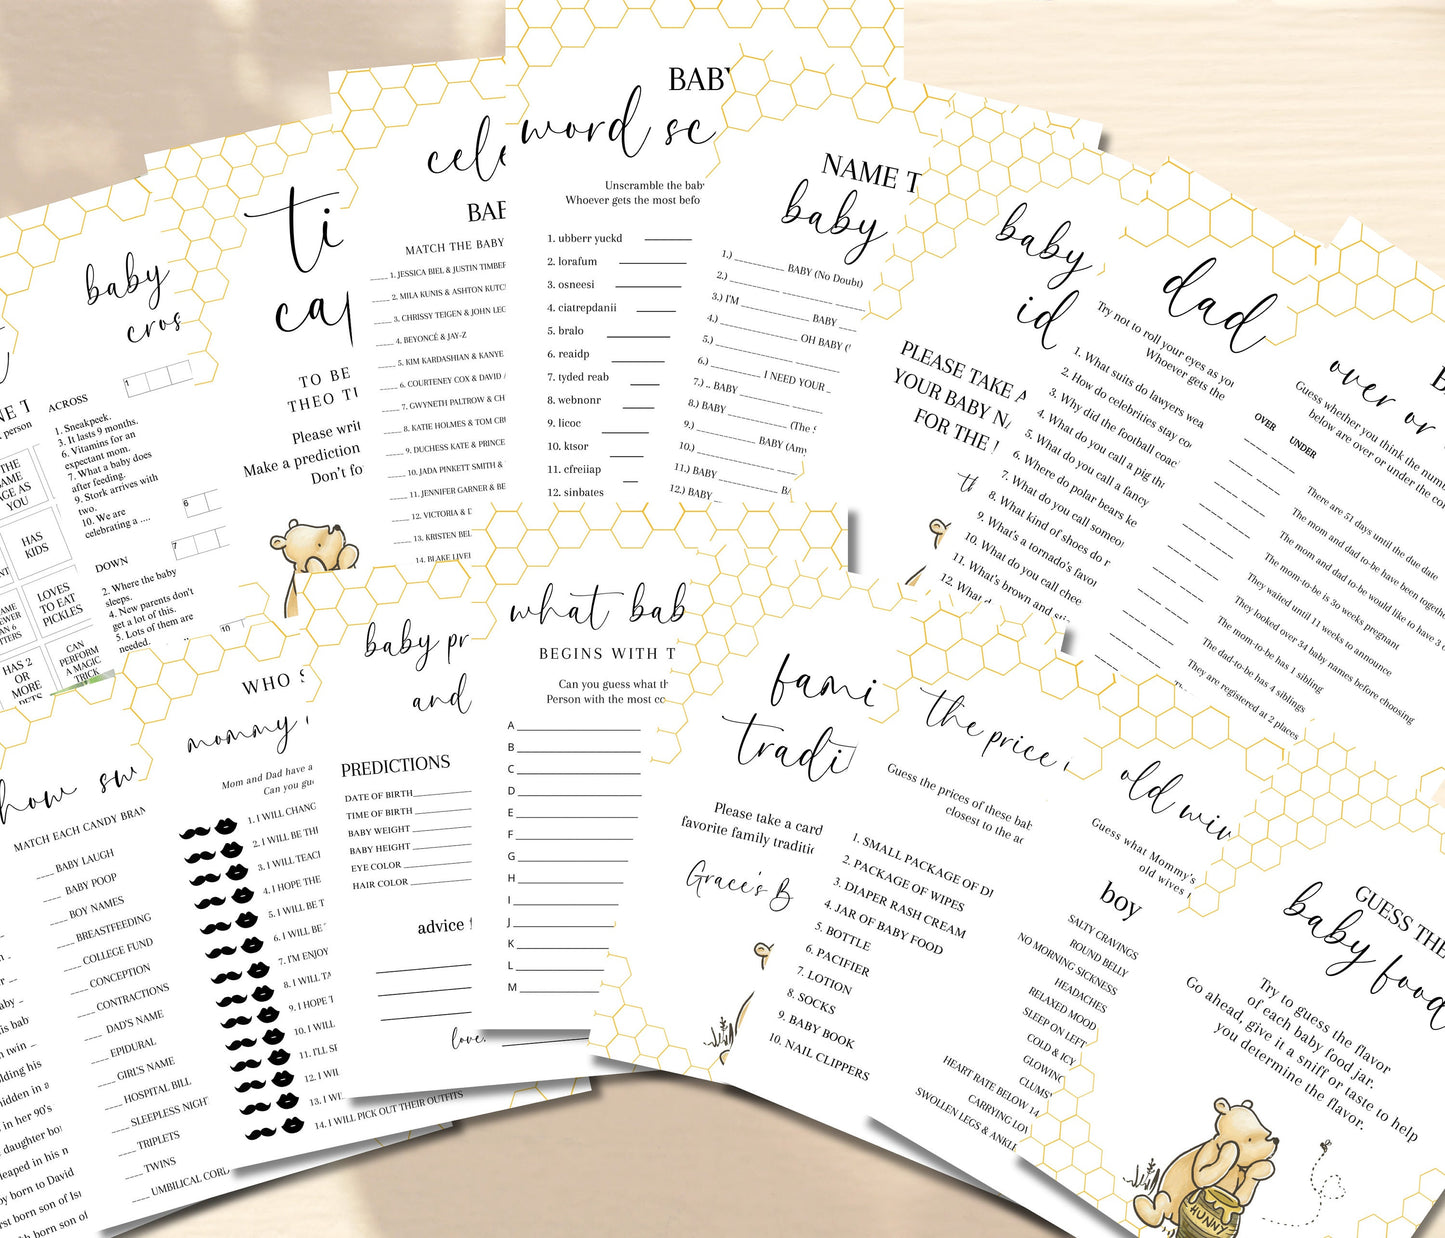 baby
cros
ACROSS
1. Sneakpeek.
3. It lasts 9 months.
6. Vitamins for an
expectant mom.
7. What a baby does
after feeding.
9. Stork arrives with
two.
10. We are
celebrating a ....
DOWN
2. Where the baby
sleeps.
4. New parents don't
get a lot of this.
5. Lots of them are
needed.
1
6
7
10
person
THE
AS
YOU
HAS
KIDS
LOVES
TO EAT
PICKLES
HAS 2
OR
MORE
PETS
CAN
PERFORM
A MAGIC
TRICK
ti
cap
TO BE
THEO TI
Please writ
Make a prediction
Don't fo
cele
BAB
MATCH THE BABY
1. JESSICA BIEL & JUSTIN TIMBER
2. MILA KUNIS & ASHTON KUTC
3. CHRISSY TEIGEN & JOHN LEG
4. BEYONCÉ & JAY-Z
5. KIM KARDASHIAN & KANYE
6. COURTENEY COX & DAVID
7. GWYNETH PALTROW & CH
8. KATIE HOLMES & TOM CR
9. DUCHESS KATE & PRINCE
10. JADA PINKETT SMITH &
11. JENNIFER GARNER & BE
12. VICTORIA & D
13. KRISTEN BEL
14. BLAKE LIVEL
BABY
word sc
Unscramble the bab
Whoever gets the most befo
1. ubberr yuckd
2. lorafum
3. osneesi
4. ciatrepdanii
5. bralo
6. reaidp
7. tyded reab
8. webnonr
9. licoc
10. ktsor
11. cfreiiap
12. sinbates
NAME T
baby
1.) BABY (No Doubt)
2.)
3.) I'M BABY
4.) OH BABY
5.)
6.) I NEED YOUR
7.) .. BABY
8.) BABY (The
9.) BABY (Amy
10.)
11.) BABY
12.) BABY
baby
id
PLEASE TAKE A
YOUR BABY NA
FOR THE
th
dad
Try not to roll your eyes as you
Whoever gets the
1. What suits do lawyers wea
2. How do celebrities stay co
3. Why did the football coac
4. What do you call a pig th
5. What do you call a fancy
6. Where do polar bears ke
7. What do you call someo
8. What kind of shoes do
9. What's a tornado's favo
10. What do you call chee
11. What's brown and sti
12. What d
B
over or
Guess whether you think the numb
below are over or under the co
OVER UNDER
There are 51 days until the due date
The mom and dad to-be have been togethe
The mom and dad to-be would like to have 3
The mom-to-be is 30 weeks pregnant
They waited until 11 weeks to announce
They looked over 34 baby names before choosing
The mom-to-be has 1 sibling
The dad-to-be has 4 siblings
They are registered at 2 places
how sw
MATCH EACH CANDY BRAN
BABY LAUGH
BABY POOP
BOY NAMES
BREASTFEEDING
COLLEGE FUND
CONCEPTION
CONTRACTIONS
DAD'S NAME
EPIDURAL
GIRL'S NAME
HOSPITAL BILL
SLEEPLESS NIGHT
TRIPLETS
TWINS
UMBILICAL CORD
WHO S
mommy
Mom and Dad have a
Can you gue
1. I WILL CHANG
2. I WILL BE TH
3. I WILL TEAC
4. I HOPE THE
5. I WILL BE T
6. I WILL BE
7. I'M ENJOY
8. I WILL TA
9. I HOPE T
10. I WILL
11. I'LL SI
12. I WIL
13. I WI
14. I WILL PICK OUT THEIR OUTFITS
baby pr
and
PREDICTIONS
DATE OF BIRTH
TIME OF BIRTH
BABY WEIGHT
BABY HEIGHT
EYE COLOR
HAIR COLOR
advice f
love,
what bab
BEGINS WITH T
Can you guess what th
Person with the most co
A
B
C
D
E
F
G
H
I
J
K
L
M
fami
tradi
Please take a card
favorite family traditio
Grace's B
the price
Guess the prices of these bab
closest to the ac
1. SMALL PACKAGE OF DI
2. PACKAGE OF WIPES
3. DIAPER RASH CREAM
4. JAR OF BABY FOOD
5. BOTTLE
6. PACIFIER
7. LOTION
8. SOCKS
9. BABY BOOK
10. NAIL CLIPPERS
old wiv
Guess what Mommy's
old wives
boy
SALTY CRAVINGS
ROUND BELLY
NO MORNING SICKNESS
HEADACHES
RELAXED MOOD
SLEEP ON LEFT
COLD & ICY
GLOWING
CLUMS
HEART RATE BELOW 14
CARRYING LOW
SWOLLEN LEGS & ANKL
GUESS THE
baby food
Try to guess the flavor
of each baby food jar.
Go ahead, give it a sniff or taste to help
you determine the flavor.
HUNNY